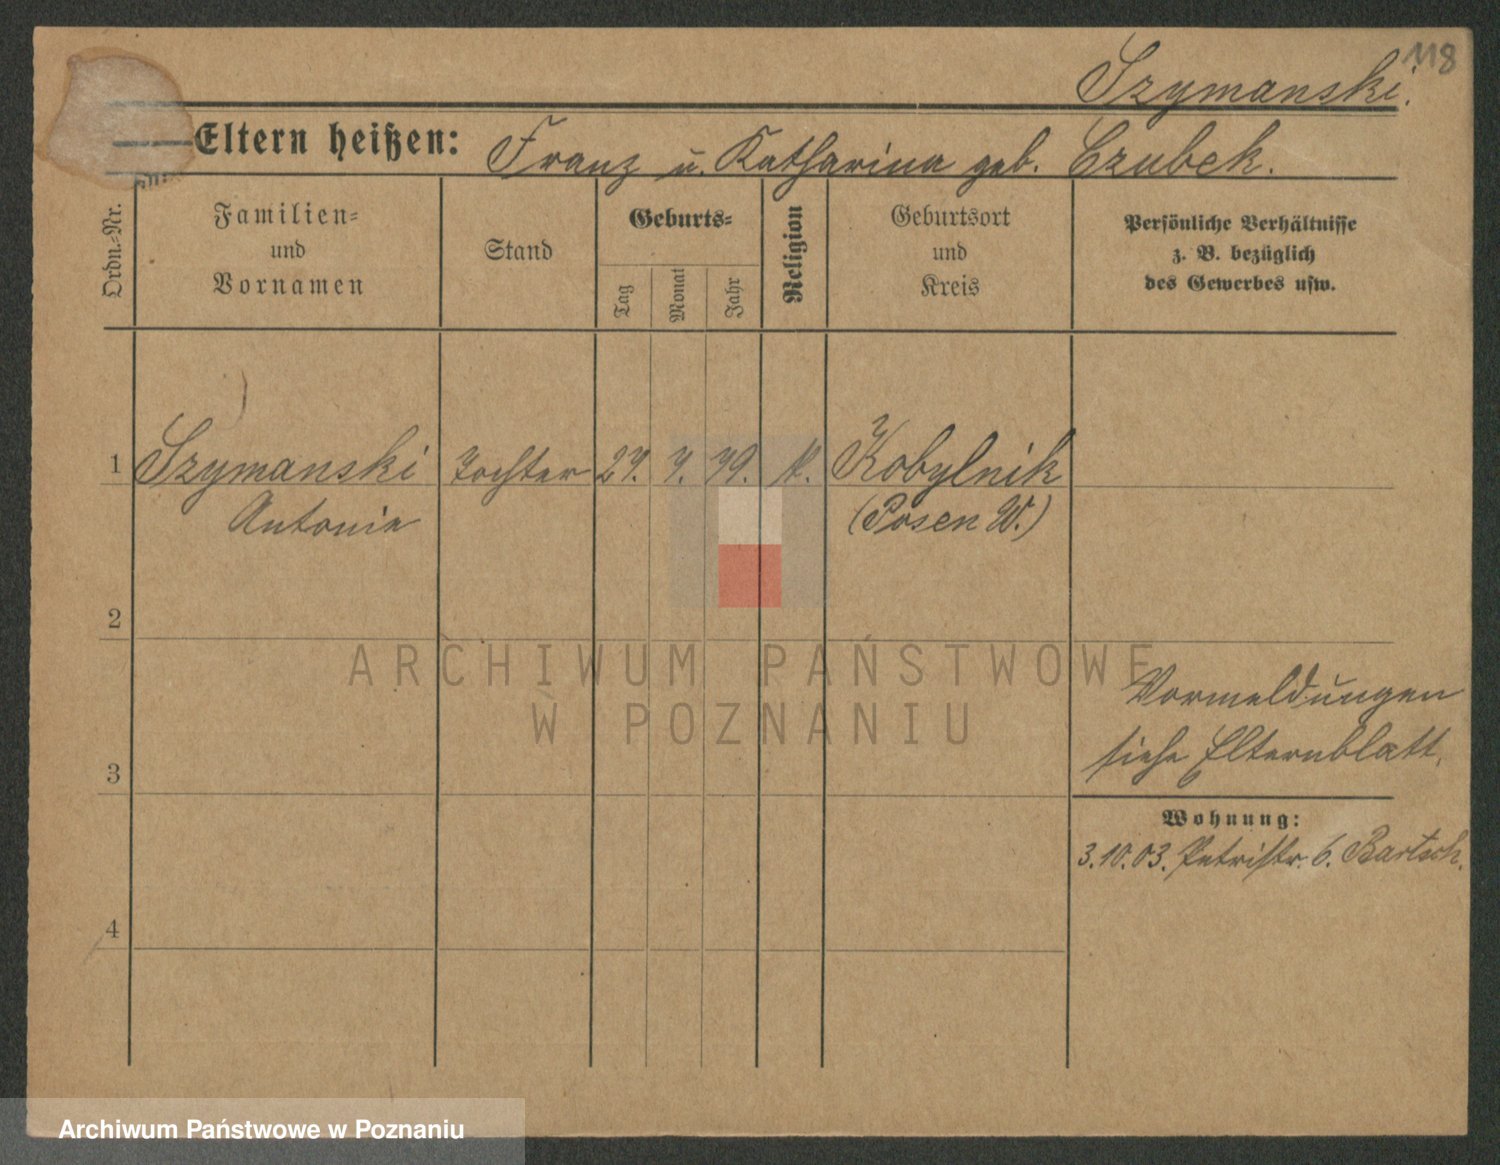 118
Szymanski.
Eltern heißen: Franz u. Katharina geb. Czubek.
Ordn.-Nr.
Familien-
und
Vornamen
Stand
Geburts-
Tag
Monat
Jahr
Religion
Geburtsort
und
Kreis
Persönliche Verhältnisse
z. B. bezüglich
des Gewerbes usw.
1 Szymanski Tochter 27. 7. 79. k. Kobylnik
Antonie (Posen W.)
2
ARCHIWUM PAŃSTWOWE
W POZNANIU
Vormeldungen
siehe Elternblatt.
3
Wohnung:
3.10.03. Petristr. 6. Bartsch.
4
Archiwum Państwowe w Poznaniu